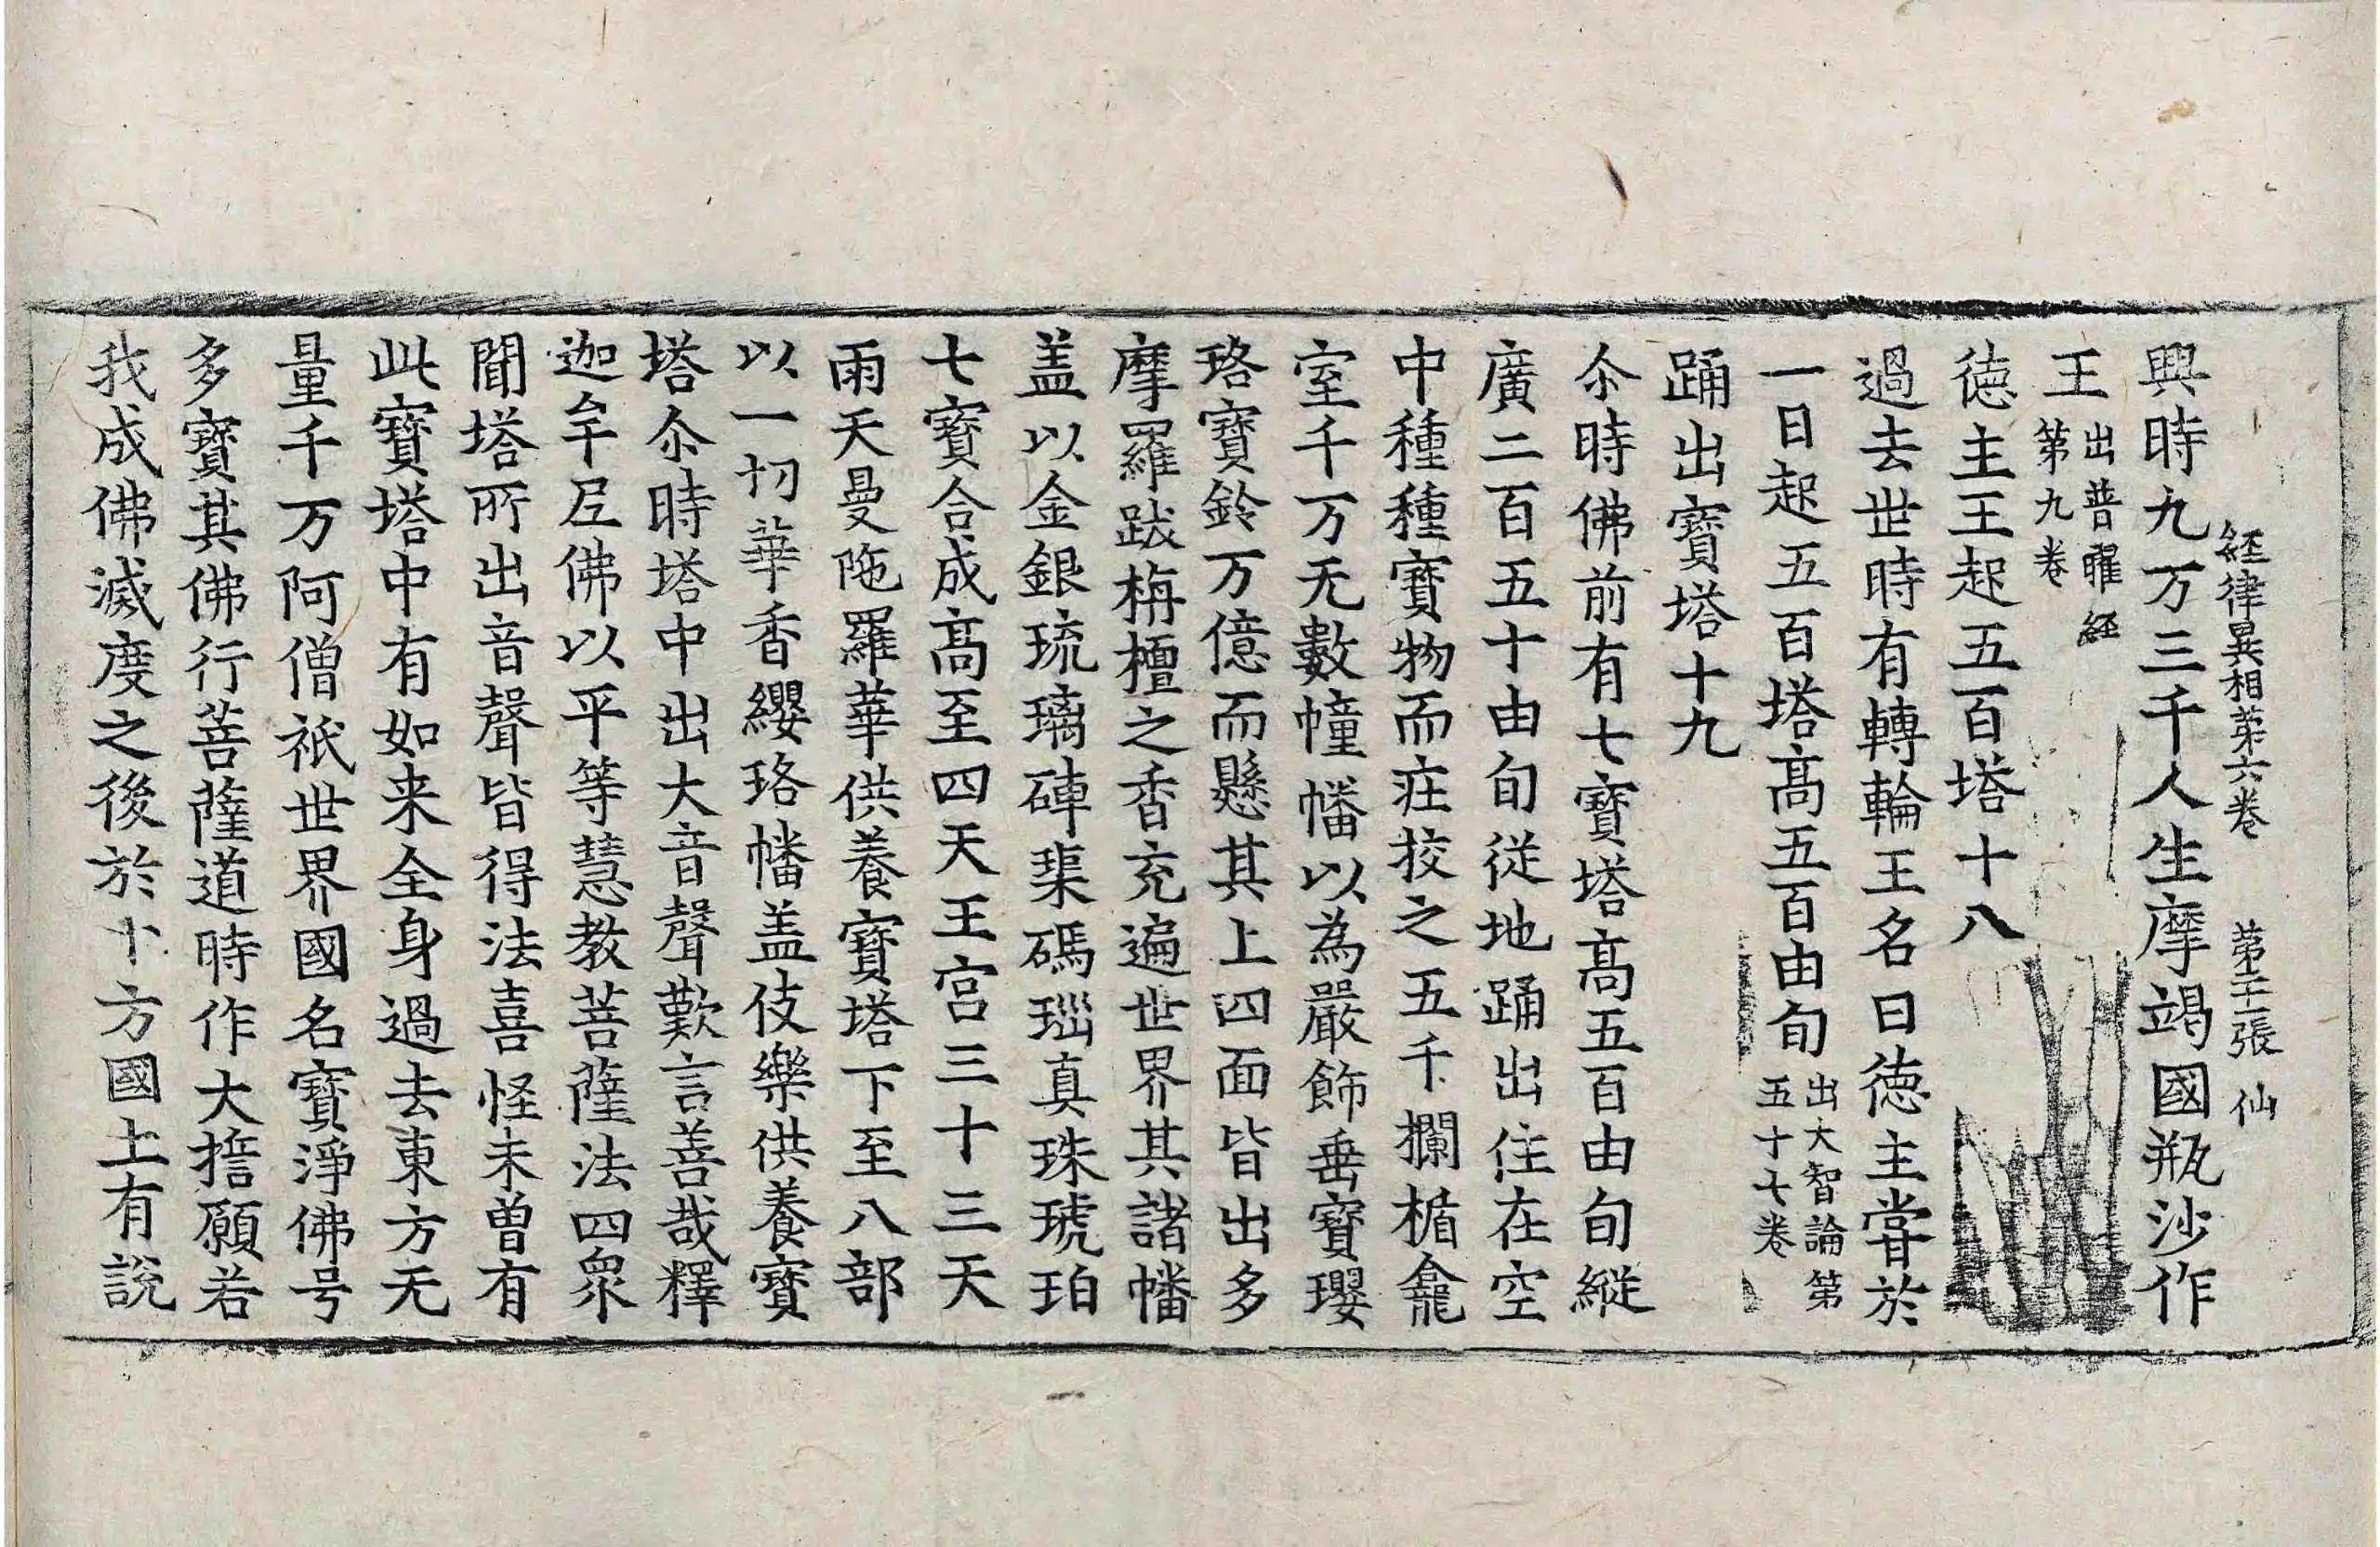 経律異相苐六卷 苐二十二張 仙
興時九万三千人生摩竭國瓶沙作
王出普曜経第九卷
德主王起五百塔十八
過去世時有轉輪王名曰徳主甞於
一日起五百塔髙五百由旬出大智論第五十七卷
踊出寶塔十九
尒時佛前有七寶塔髙五百由旬縱
廣二百五十由旬從地踊出住在空
中種種寶物而庄挍之五千欄楯龕
室千万无數幢幡以為嚴飾垂寶瓔
珞寶鈴万億而懸其上四面皆出多
摩羅跋栴檀之香充遍世界其諸幡
盖以金銀琉璃硨磲碼瑙真珠琥珀
七寶合成髙至四天王宫三十三天
雨天曼陁羅華供養寶塔下至八部
以一切華香纓珞幡盖伎樂供養寶
塔尒時塔中出大音聲歎言善哉釋
迦牟尼佛以平等慧教菩薩法四衆
聞塔所出音聲皆得法喜怪未曾有
此寶塔中有如来全身過去東方无
量千万阿僧祇世界國名寶淨佛号
多寶其佛行菩薩道時作大擔願若
我成佛滅度之後於十方國土有說